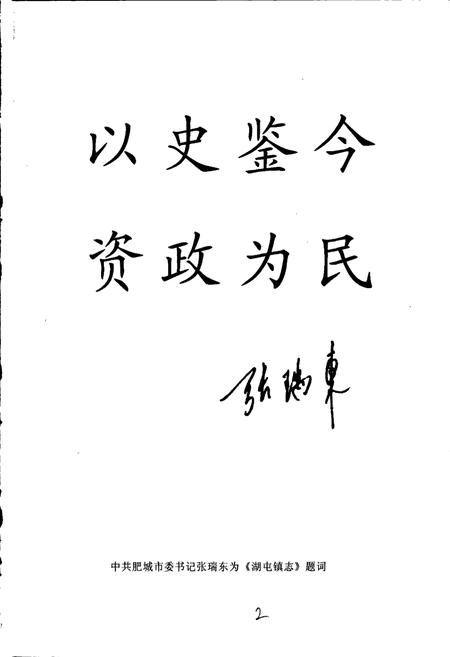 以史鉴今
资政为民
张瑞東
中共肥城市委书记张瑞东为《湖屯镇志》题词
2